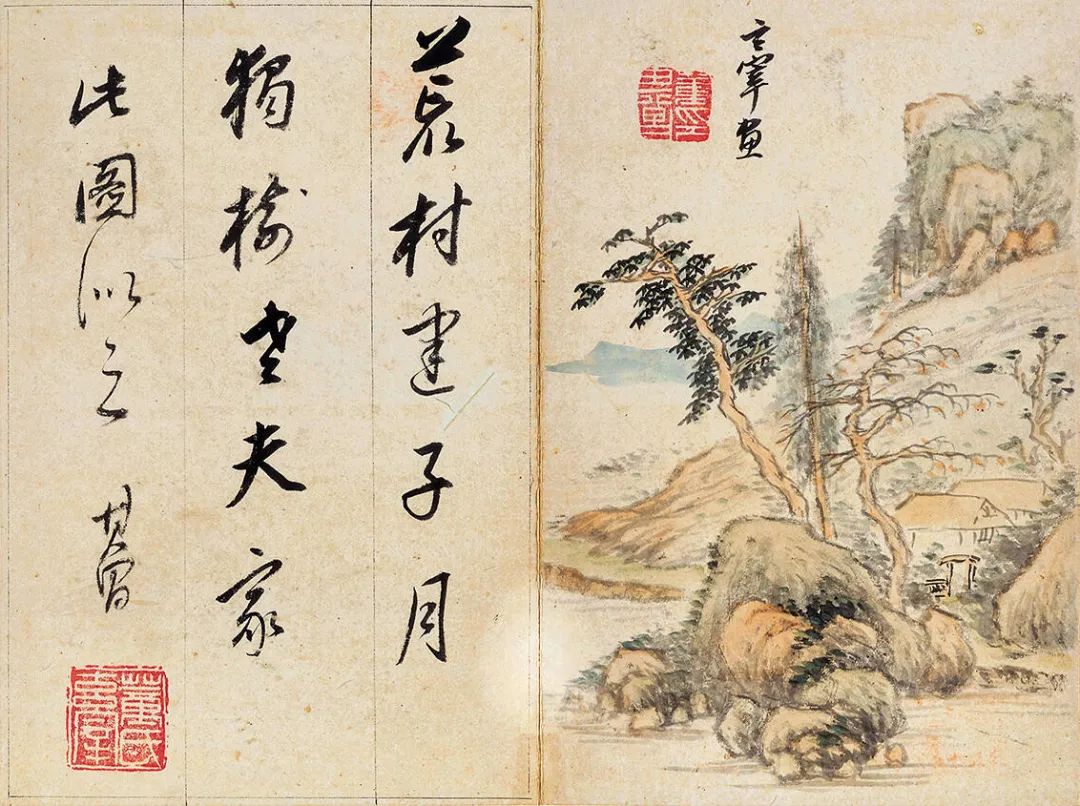 玄宰畫
荒村建子月
獨樹老夫家
此圖似之 其昌